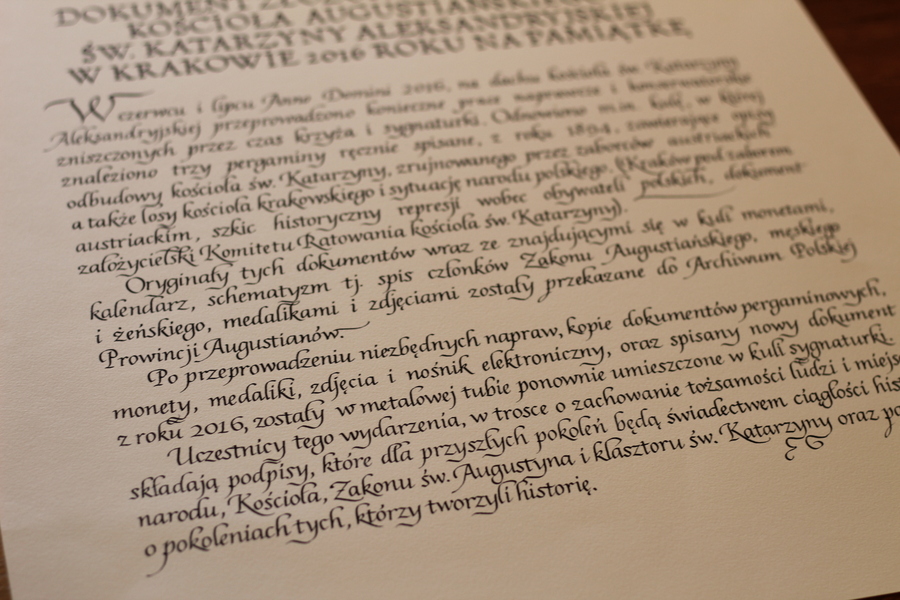 DOKUMENT
KOŚCIOŁA AUGUSTIAŃSKIEGO
ŚW. KATARZYNY ALEKSANDRYJSKIEJ
W KRAKOWIE 2016 ROKU NA PAMIĄTKĘ
W czerwcu i lipcu Anno Domini 2016, na dachu kościoła św. Katarzyny
Aleksandryjskiej przeprowadzono konieczne prace naprawcze i konserwatorskie
zniszczonych przez czas krzyża i sygnaturki. Odnowiono m.in. kulę, w której
znaleziono trzy pergaminy ręcznie spisane, z roku 1894, zawierające opisy
odbudowy kościoła św. Katarzyny, zrujnowanego przez zaborców austriackich
a także losy kościoła krakowskiego i sytuację narodu polskiego, (Kraków pod zaborem
austriackim, szkic historyczny represji wobec obywateli polskich, dokument
założycielski Komitetu Ratowania kościoła św. Katarzyny).
Oryginały tych dokumentów wraz ze znajdującymi się w kuli monetami,
kalendarz, schematyzm tj. spis członków Zakonu Augustiańskiego, męskiego
i żeńskiego, medalikami i zdjęciami zostały przekazane do Archiwum Polskiej
Prowincji Augustianów.
Po przeprowadzeniu niezbędnych napraw, kopie dokumentów pergaminowych,
monety, medaliki, zdjęcia i nośnik elektroniczny, oraz spisany nowy dokument
z roku 2016, zostały w metalowej tubie ponownie umieszczone w kuli sygnaturki.
Uczestnicy tego wydarzenia, w trosce o zachowanie tożsamości ludzi i miejsc
składają podpisy, które dla przyszłych pokoleń będą świadectwem ciągłości
narodu, Kościoła, Zakonu św. Augustyna i klasztoru św. Katarzyny oraz
o pokoleniach tych, którzy tworzyli historię.